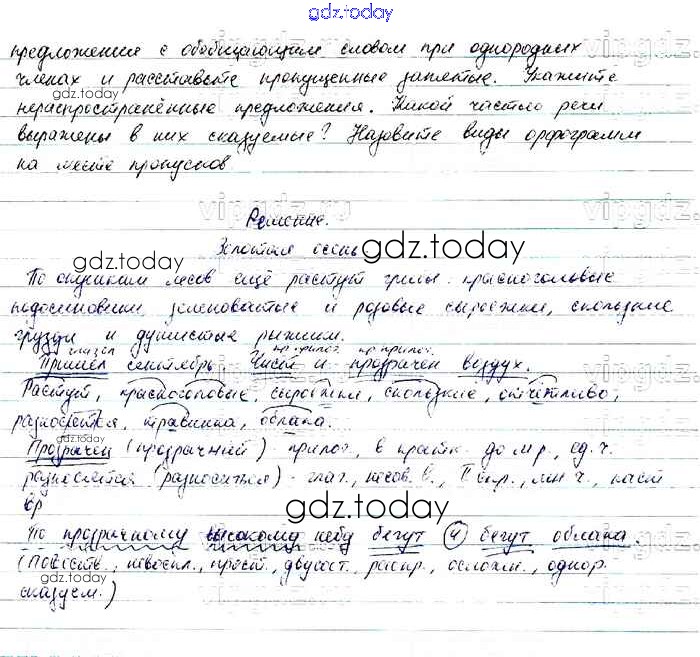 gdz.today
предложения с обобщающим словом при однородных
членах и расставьте пропущенные запятые. Укажите
нераспространённые предложения. Какой частью речи
выражены в них сказуемые? Назовите виды орфограмм
на месте пропусков
Решение.
Золотая осень
По опушкам лесов ещё растут грибы: красноголовые
подосиновики, зеленоватые и розовые сыроежки, скользкие
грузди и душистые рыжики.
глагол кр. прилог. кр прилог.
Пришёл сентябрь. Чист и прозрачен воздух.
Растут, красноголовые, сыроежки, скользкие, отчётливо,
разносятся, травинка, облака.
Прозрачен (прозрачный) - прилог., в кратк. ф м.р., ед.ч.
разносятся (разноситься) - глаг., несов. в., I спр., мн ч., наст
вр
По прозрачному высокому небу бегут (и) бегут облака.
(Повеств., невоскл., прост., двусост., распр., осложн., однор.
сказуем.)
gdz.today
gdz.today
gdz.today
gdz.today
gdz.today
gdz.today
gdz.today
gdz.today
vipgdz.ru